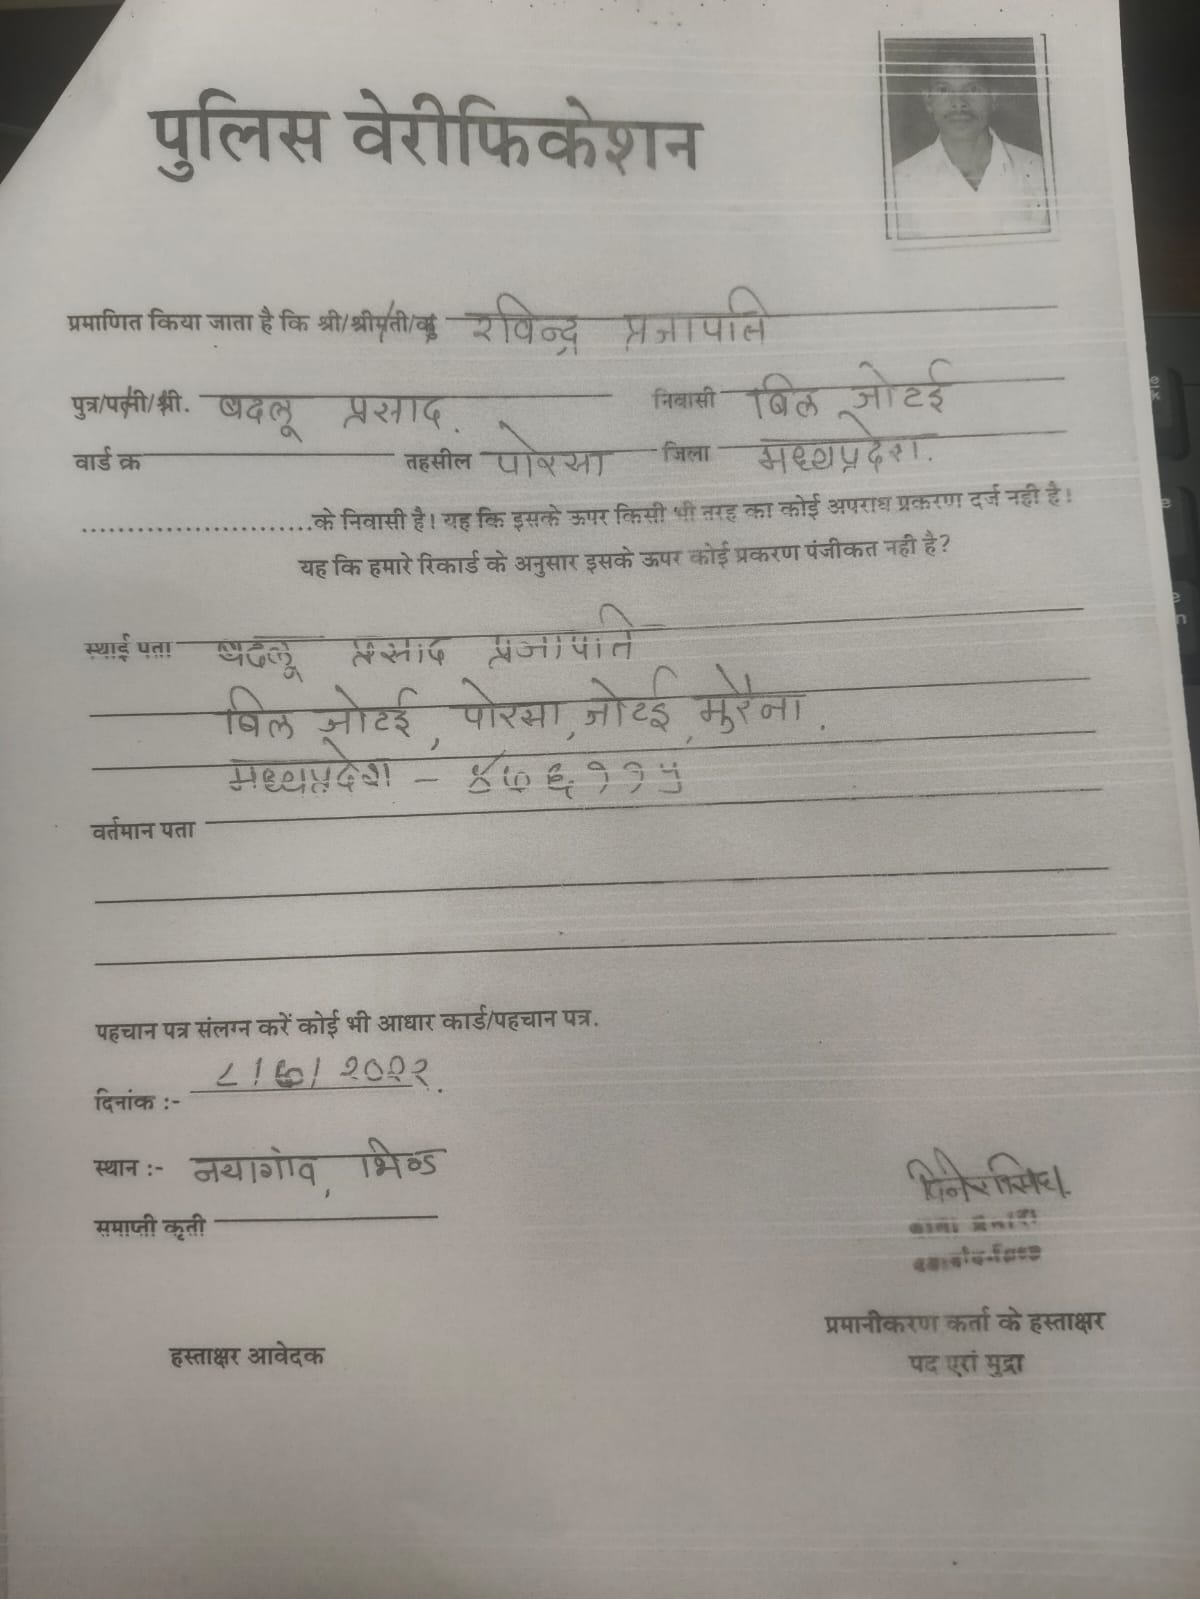 पुलिस वेरीफिकेशन
प्रमाणित किया जाता है कि श्री/श्रीमती/कु रविन्द्र प्रजापति
पुत्र/पत्नी/श्री. बदलू प्रसाद. निवासी बिल जोटई
वार्ड क्र तहसील पोरसा जिला मध्यप्रदेश.
........................के निवासी है। यह कि इसके ऊपर किसी भी तरह का कोई अपराध प्रकरण दर्ज नही है।
यह कि हमारे रिकार्ड के अनुसार इसके ऊपर कोई प्रकरण पंजीकत नही है?
स्थाई पता बदलू प्रसाद प्रजापति
बिल जोटई, पोरसा, जोटई, मुरैना.
मध्यप्रदेश - ४७६११५
वर्तमान पता
पहचान पत्र संलग्न करें कोई भी आधार कार्ड/पहचान पत्र.
दिनांक :- ८/६/२०२२.
स्थान :- नयागांव, भिण्ड
समाप्ती कृती
प्रमानीकरण कर्ता के हस्ताक्षर
हस्ताक्षर आवेदक
पद एरां मुद्रा